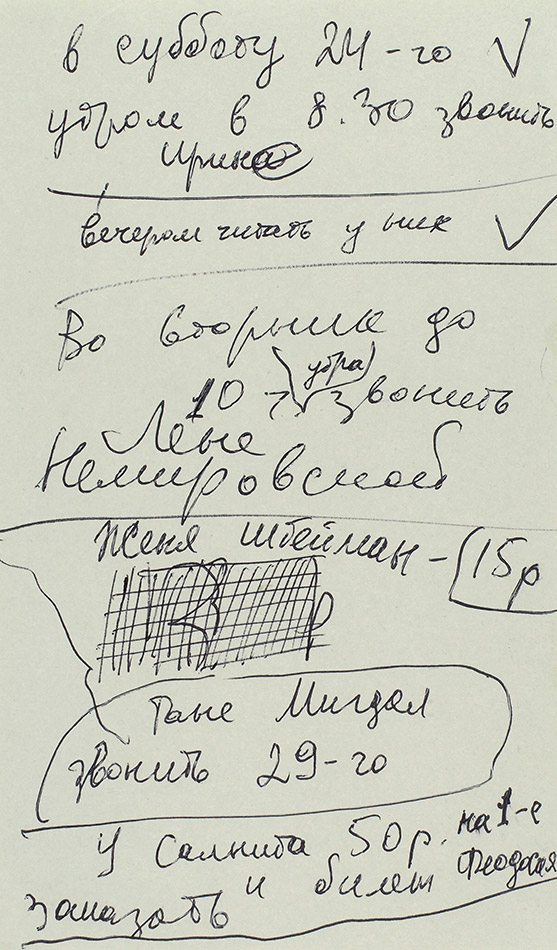 в субботу 24-го
утром в 8.30 звонить
Ирина
вечером читать у них
Во вторник до
10 утра звонить
Лене
Немировской
Женя Штейман - 15р
Тане Мигдал
звонить 29-го
У Салнита 50р. на 1-е
заказать и билет Феодосия